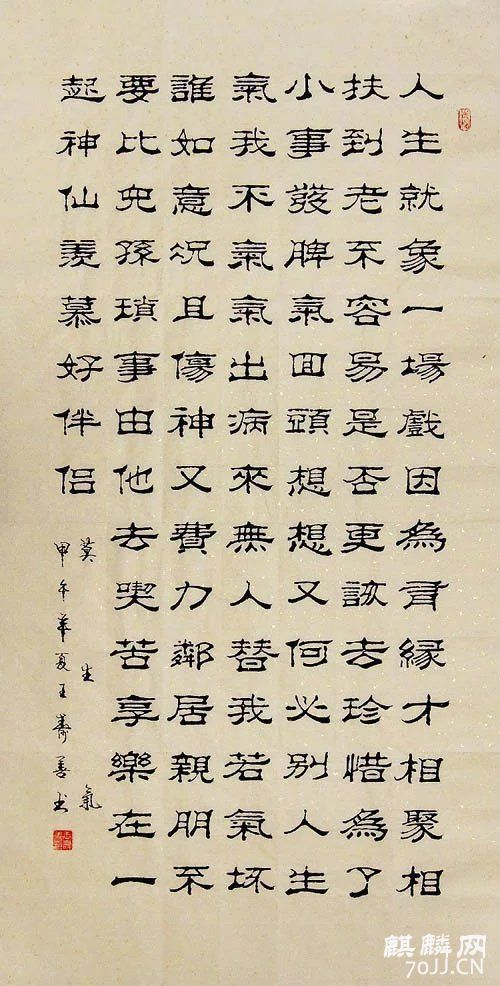 人生就象一場戲因為有緣才相聚相
扶到老不容易是否更該去珍惜為了
小事發脾氣回頭想想又何必別人生
氣我不氣氣出病來無人替我若氣坏
誰如意況且傷神又費力鄰居親朋不
要比兒孫瑣事由他去喫苦享樂在一
起神仙羨慕好伴侶
莫生氣
甲午年夏王壽善书
麒麟网
70JJ.CN